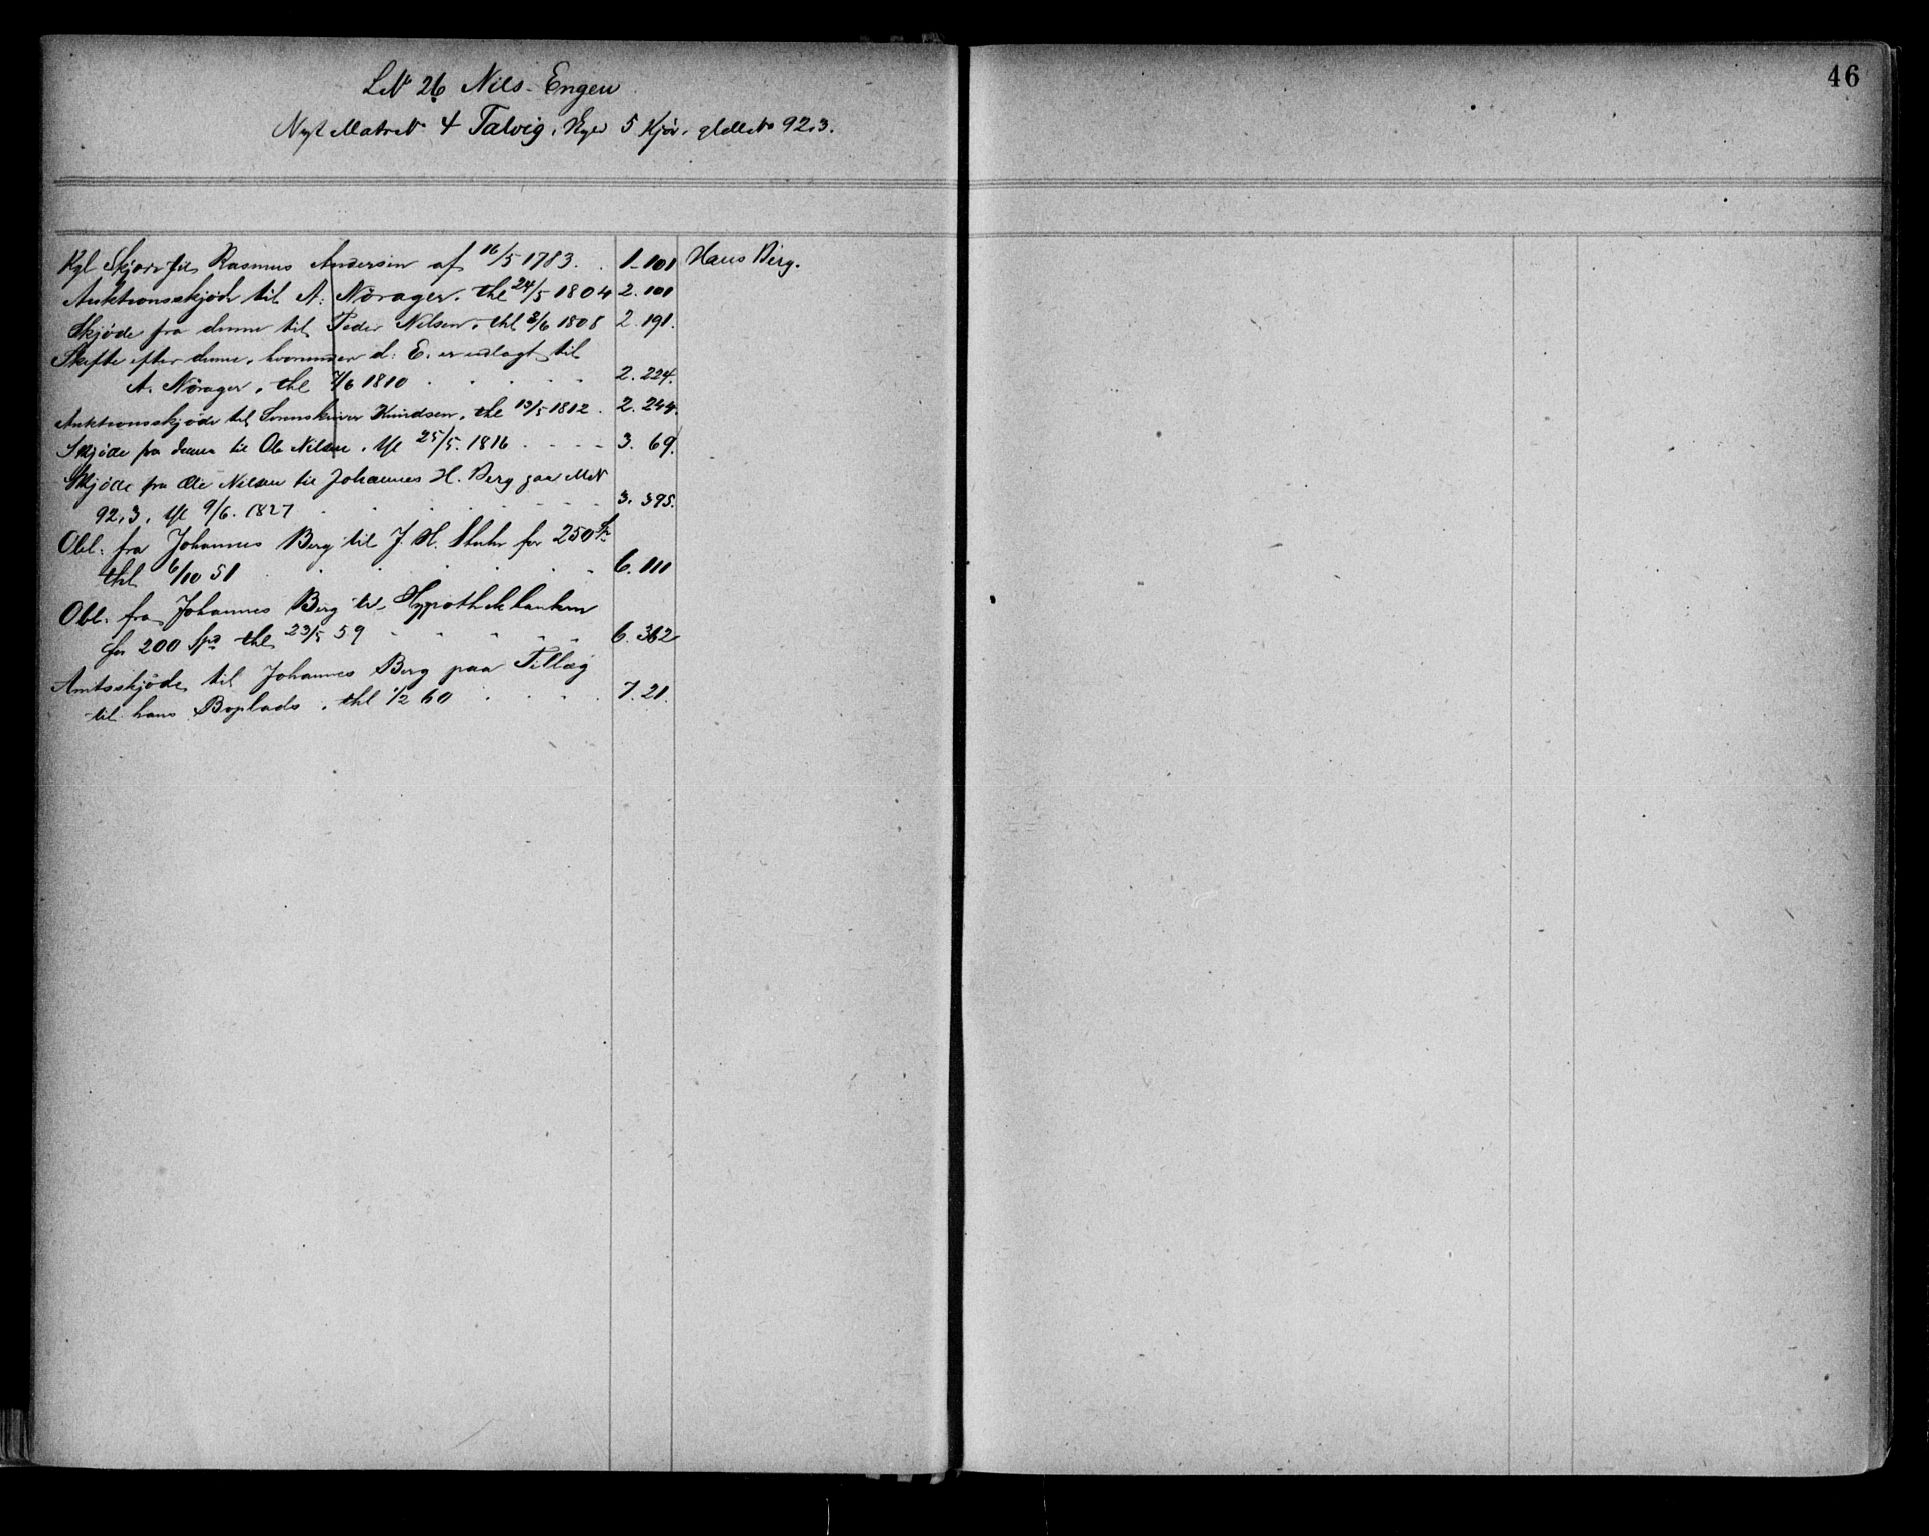 46
LN 26 Nils-Engen
Nyt MatrN 4 Talvig, 5 Kjör. glMNo 92,3.
Kgl Skjøde til Rasmus Andersen af 16/5 1783. 1-101 Hans Berg.
Auktionsskjöde til A. Nörager, thl 24/5 1804 2. 101
Skjöde fra denne til Peder Nilsen, thl 3/6 1808 2. 191.
Skifte efter denne, hvorunder d: E. er udlagt til
A. Nörager, thl 7/6 1810 2. 224.
Auktionsskjöde til Knudsen, thl 13/5 1812. 2. 244.
Skjöde fra denne til Ole Nilsen, thl 25/5. 1816 3. 69.
Skjöde fra Ole Nilsen til Johannes H. Berg paa MN
92,3, thl 9/6. 1827 3. 395.
Obl. fra Johannes Berg til J. H. for 250 Sp
thl 6/10 51 6. 111
Obl. fra Johannes Berg til Hypothekbanken
for 200 Spd thl 23/5 59 6. 362
Amtsskjöde til Johannes Berg paa Tillæg
til hans Boplads, thl 1/2 60 7. 21.